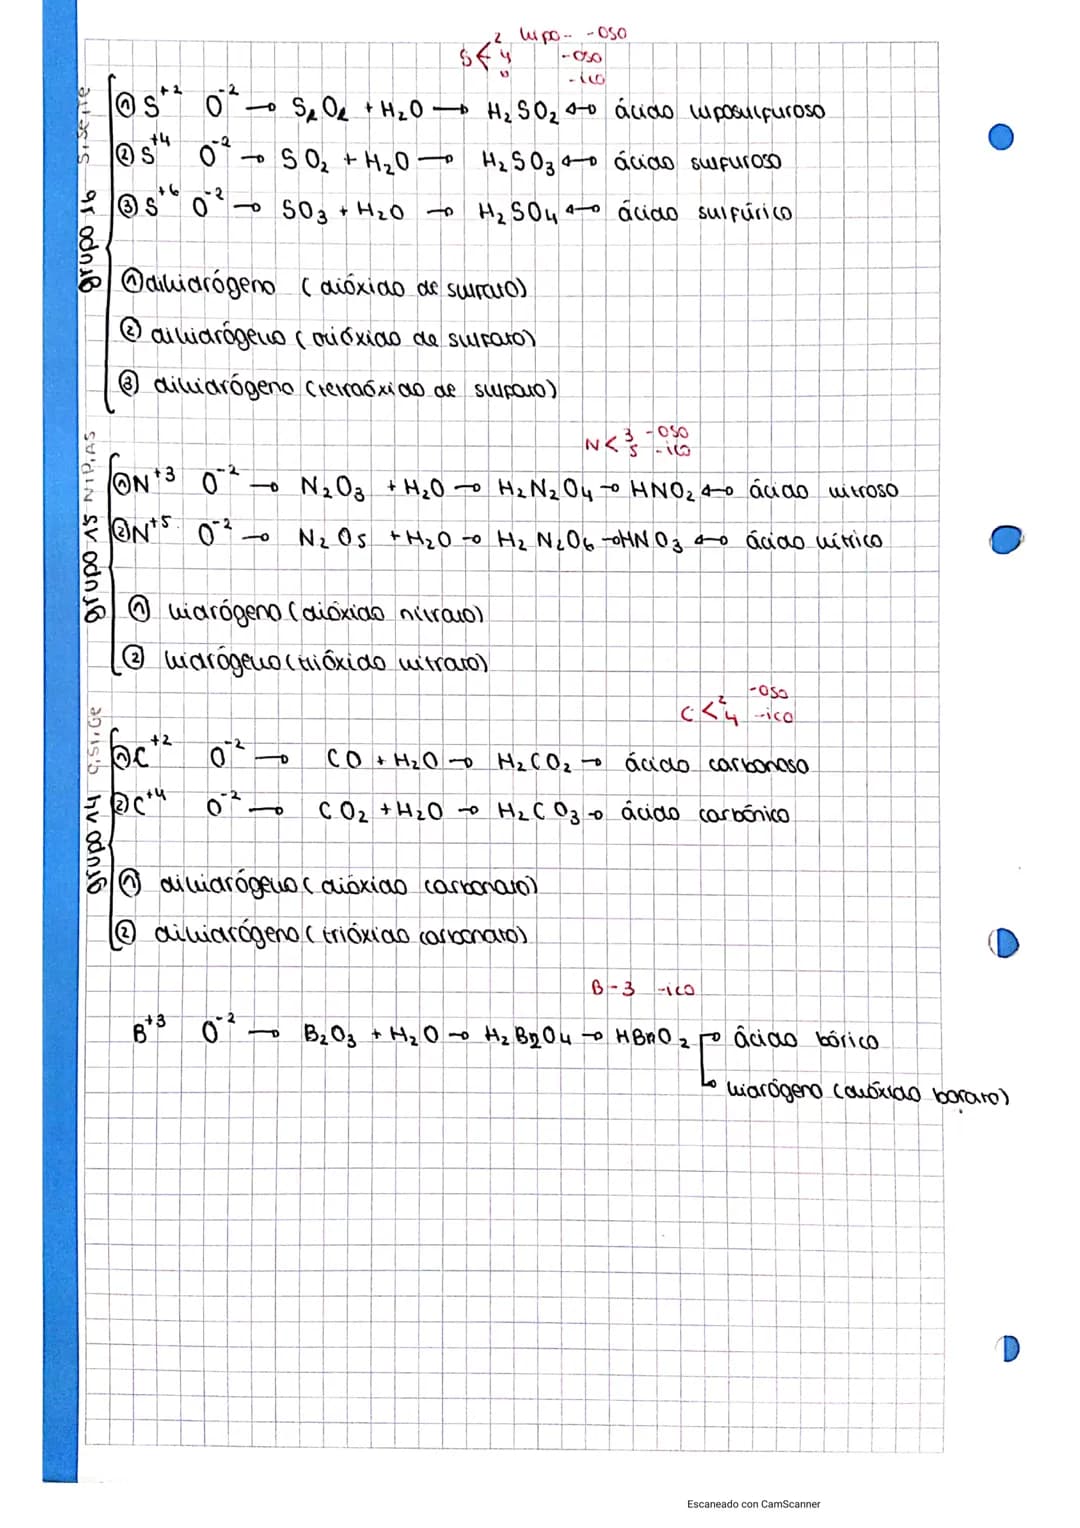 S < 2 hipo- -oso
4 -oso
6 -ico
Grupo 16 S, Se, Te
① S⁺² O⁻² → S₂O₂ + H₂O → H₂SO₂ ↔ ácido hiposulfuroso
② S⁺⁴ O⁻² → SO₂ + H₂O → H₂SO₃ ↔ ácido sulfuroso
③ S⁺⁶ O⁻² → SO₃ + H₂O → H₂SO₄ ↔ ácido sulfúrico
① dihidrógeno (dióxido de sulfato)
② dihidrógeno (trióxido de sulfato)
③ dihidrógeno (tetraóxido de sulfato)
N < 3 -oso
5 -ico
Grupo 15 N, P, As
① N⁺³ O⁻² → N₂O₃ + H₂O → H₂N₂O₄ → HNO₂ ↔ ácido nitroso
② N⁺⁵ O⁻² → N₂O₅ + H₂O → H₂N₂O₆ → HNO₃ ↔ ácido nítrico
① hidrógeno (dióxido nitrato)
② hidrógeno (trióxido nitrato)
C < 2 -oso
4 -ico
Grupo 14 C, Si, Ge
① C⁺² O⁻² → CO + H₂O → H₂CO₂ → ácido carbonoso
② C⁺⁴ O⁻² → CO₂ + H₂O → H₂CO₃ → ácido carbónico
① dihidrógeno (dióxido carbonato)
② dihidrógeno (trióxido carbonato)
B-3 -ico
B⁺³ O⁻² → B₂O₃ + H₂O → H₂B₂O₄ → HBnO₂ → ácido bórico
↳ hidrógeno (dióxido borato)
Escaneado con CamScanner